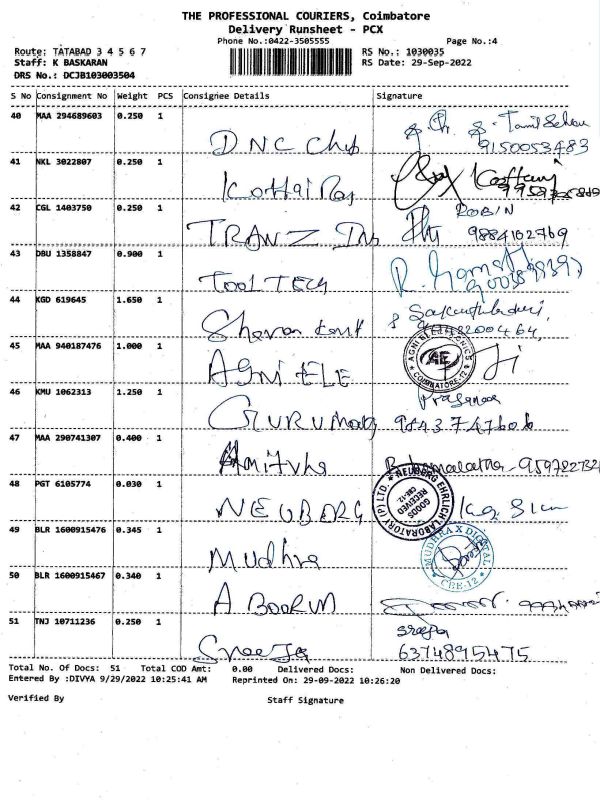 THE PROFESSIONAL COURIERS, Coimbatore
Delivery Runsheet - PCX
Phone No.:0422-3505555 Page No.:4
Route: TATABAD 3 4 5 6 7 RS No.: 1030035
Staff: K BASKARAN RS Date: 29-Sep-2022
DRS No.: DCJB103003504
S No Consignment No Weight PCS Consignee Details Signature
40 MAA 294689603 0.250 1
DNC Chb 9150053483
41 NKL 3022807 0.250 1
Kottai Raj
42 CGL 1403750 0.250 1 ROBIN
TRANZ Ins 9884102769
43 DBU 1358847 0.900 1
Tool TECH
44 KGD 619645 1.650 1
Sharon
45 MAA 940187476 1.000 1
AGNI ELE AGNI ELECTRONICS AE COIMBATORE-12
46 KMU 1062313 1.250 1 Prasanna
GURU 9843747606
47 MAA 290741307 0.400 1
48 PGT 6105774 0.030 1 NEUBERG EHRLICH LABORATORY (P) LTD. GOODS RECEIVED CBE-12
NEUBERG
49 BLR 1600915476 0.345 1 MUDHRA X DIGITAL CBE-12
Mudhra
50 BLR 1600915467 0.340 1
A BOORVA
51 TNJ 10711236 0.250 1 Sreeja
Sreeja 6374895475
Total No. Of Docs: 51 Total COD Amt: 0.00 Delivered Docs: Non Delivered Docs:
Entered By :DIVYA 9/29/2022 10:25:41 AM Reprinted On: 29-09-2022 10:26:20
Verified By Staff Signature